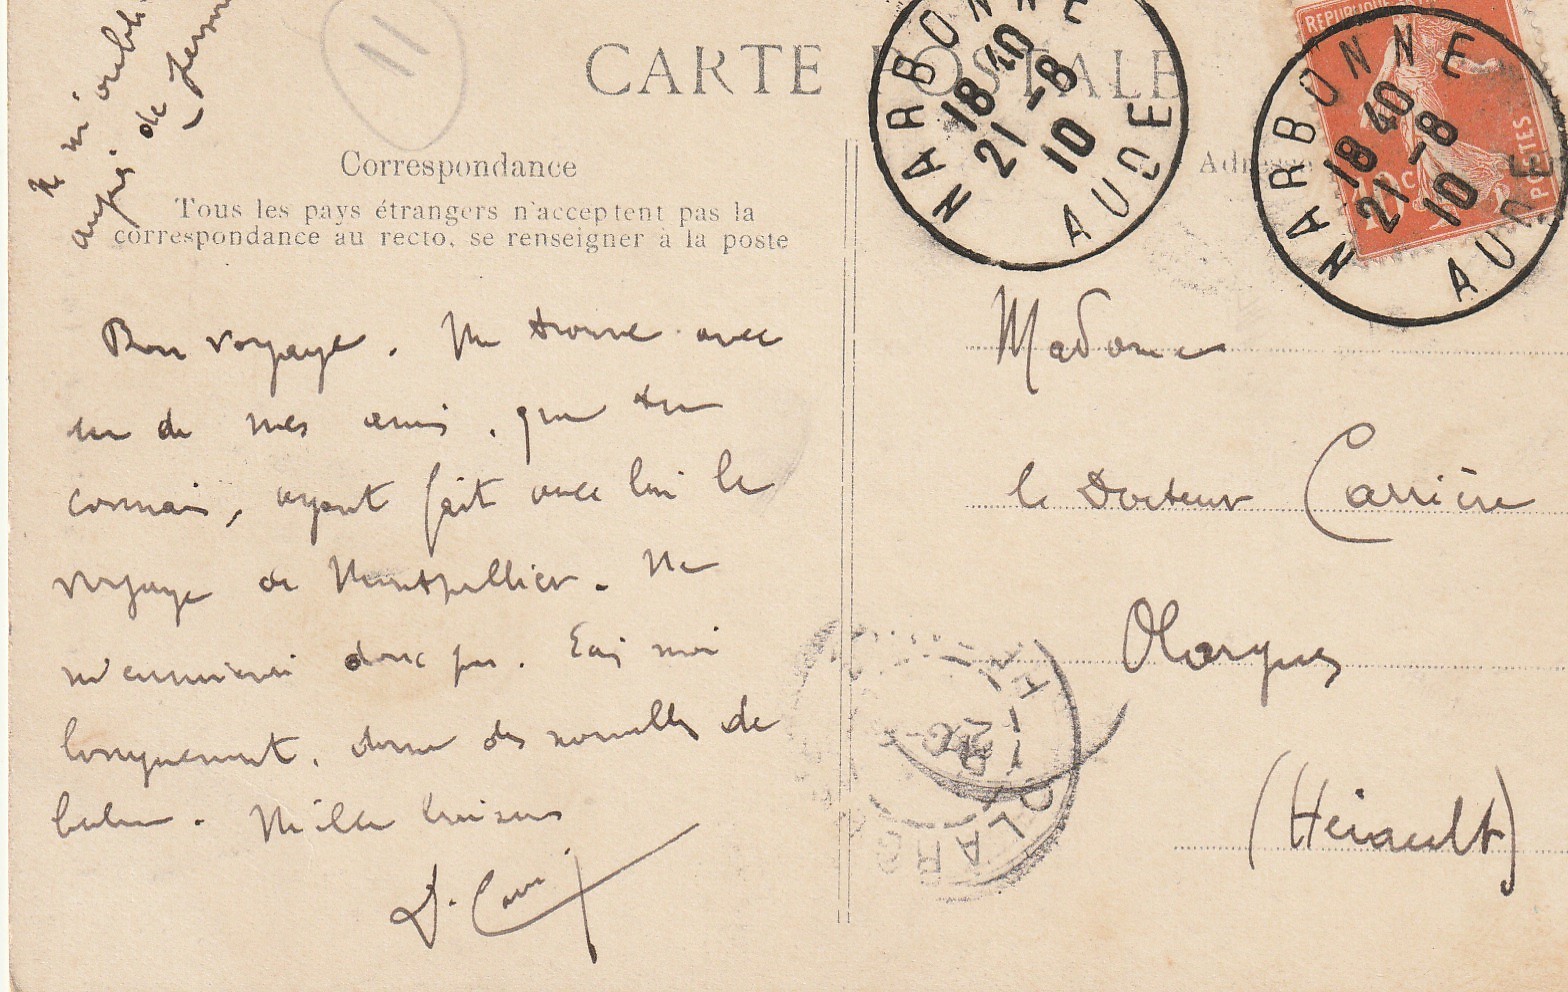 ne m'oublie
auprès de
11
CARTE POSTALE
NARBONNE
18 40
21 -8
10
AUDE
REPUBLIQUE
10c
POSTES
NARBONNE
18 40
21 -8
10
AUDE
Correspondance
Tous les pays étrangers n'acceptent pas la
correspondance au recto, se renseigner à la poste
Adresse
Bon voyage. Me trouve avec
un de mes amis, que tu
connais, ayant fait avec lui le
voyage de Montpellier. Ne
m'ennuierai donc pas. Ecris moi
longuement, donne des nouvelles de
bébé. Mille baisers
Madame
le Docteur Carrière
Olargues
(Hérault)
OLARG